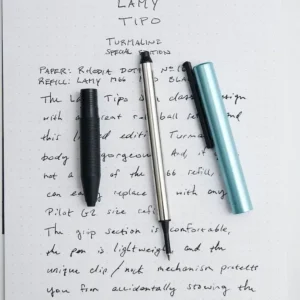 LAMY
TIPO
TURMALINE
SPECIAL EDITION
PAPER: RHODIA DOT No
REFILL: LAMY M66 BLA
The La Tipo classic sign
with a rent ball set and
this l ed editi Turma
body gorgeou And, i
not a of the 66 refill,
can ea replace with any
Pilot G2 size
The grip section is comfortable,
the pen is lightweigh and the
unique clip / nock mechanism protects
you from accidentally stowing the